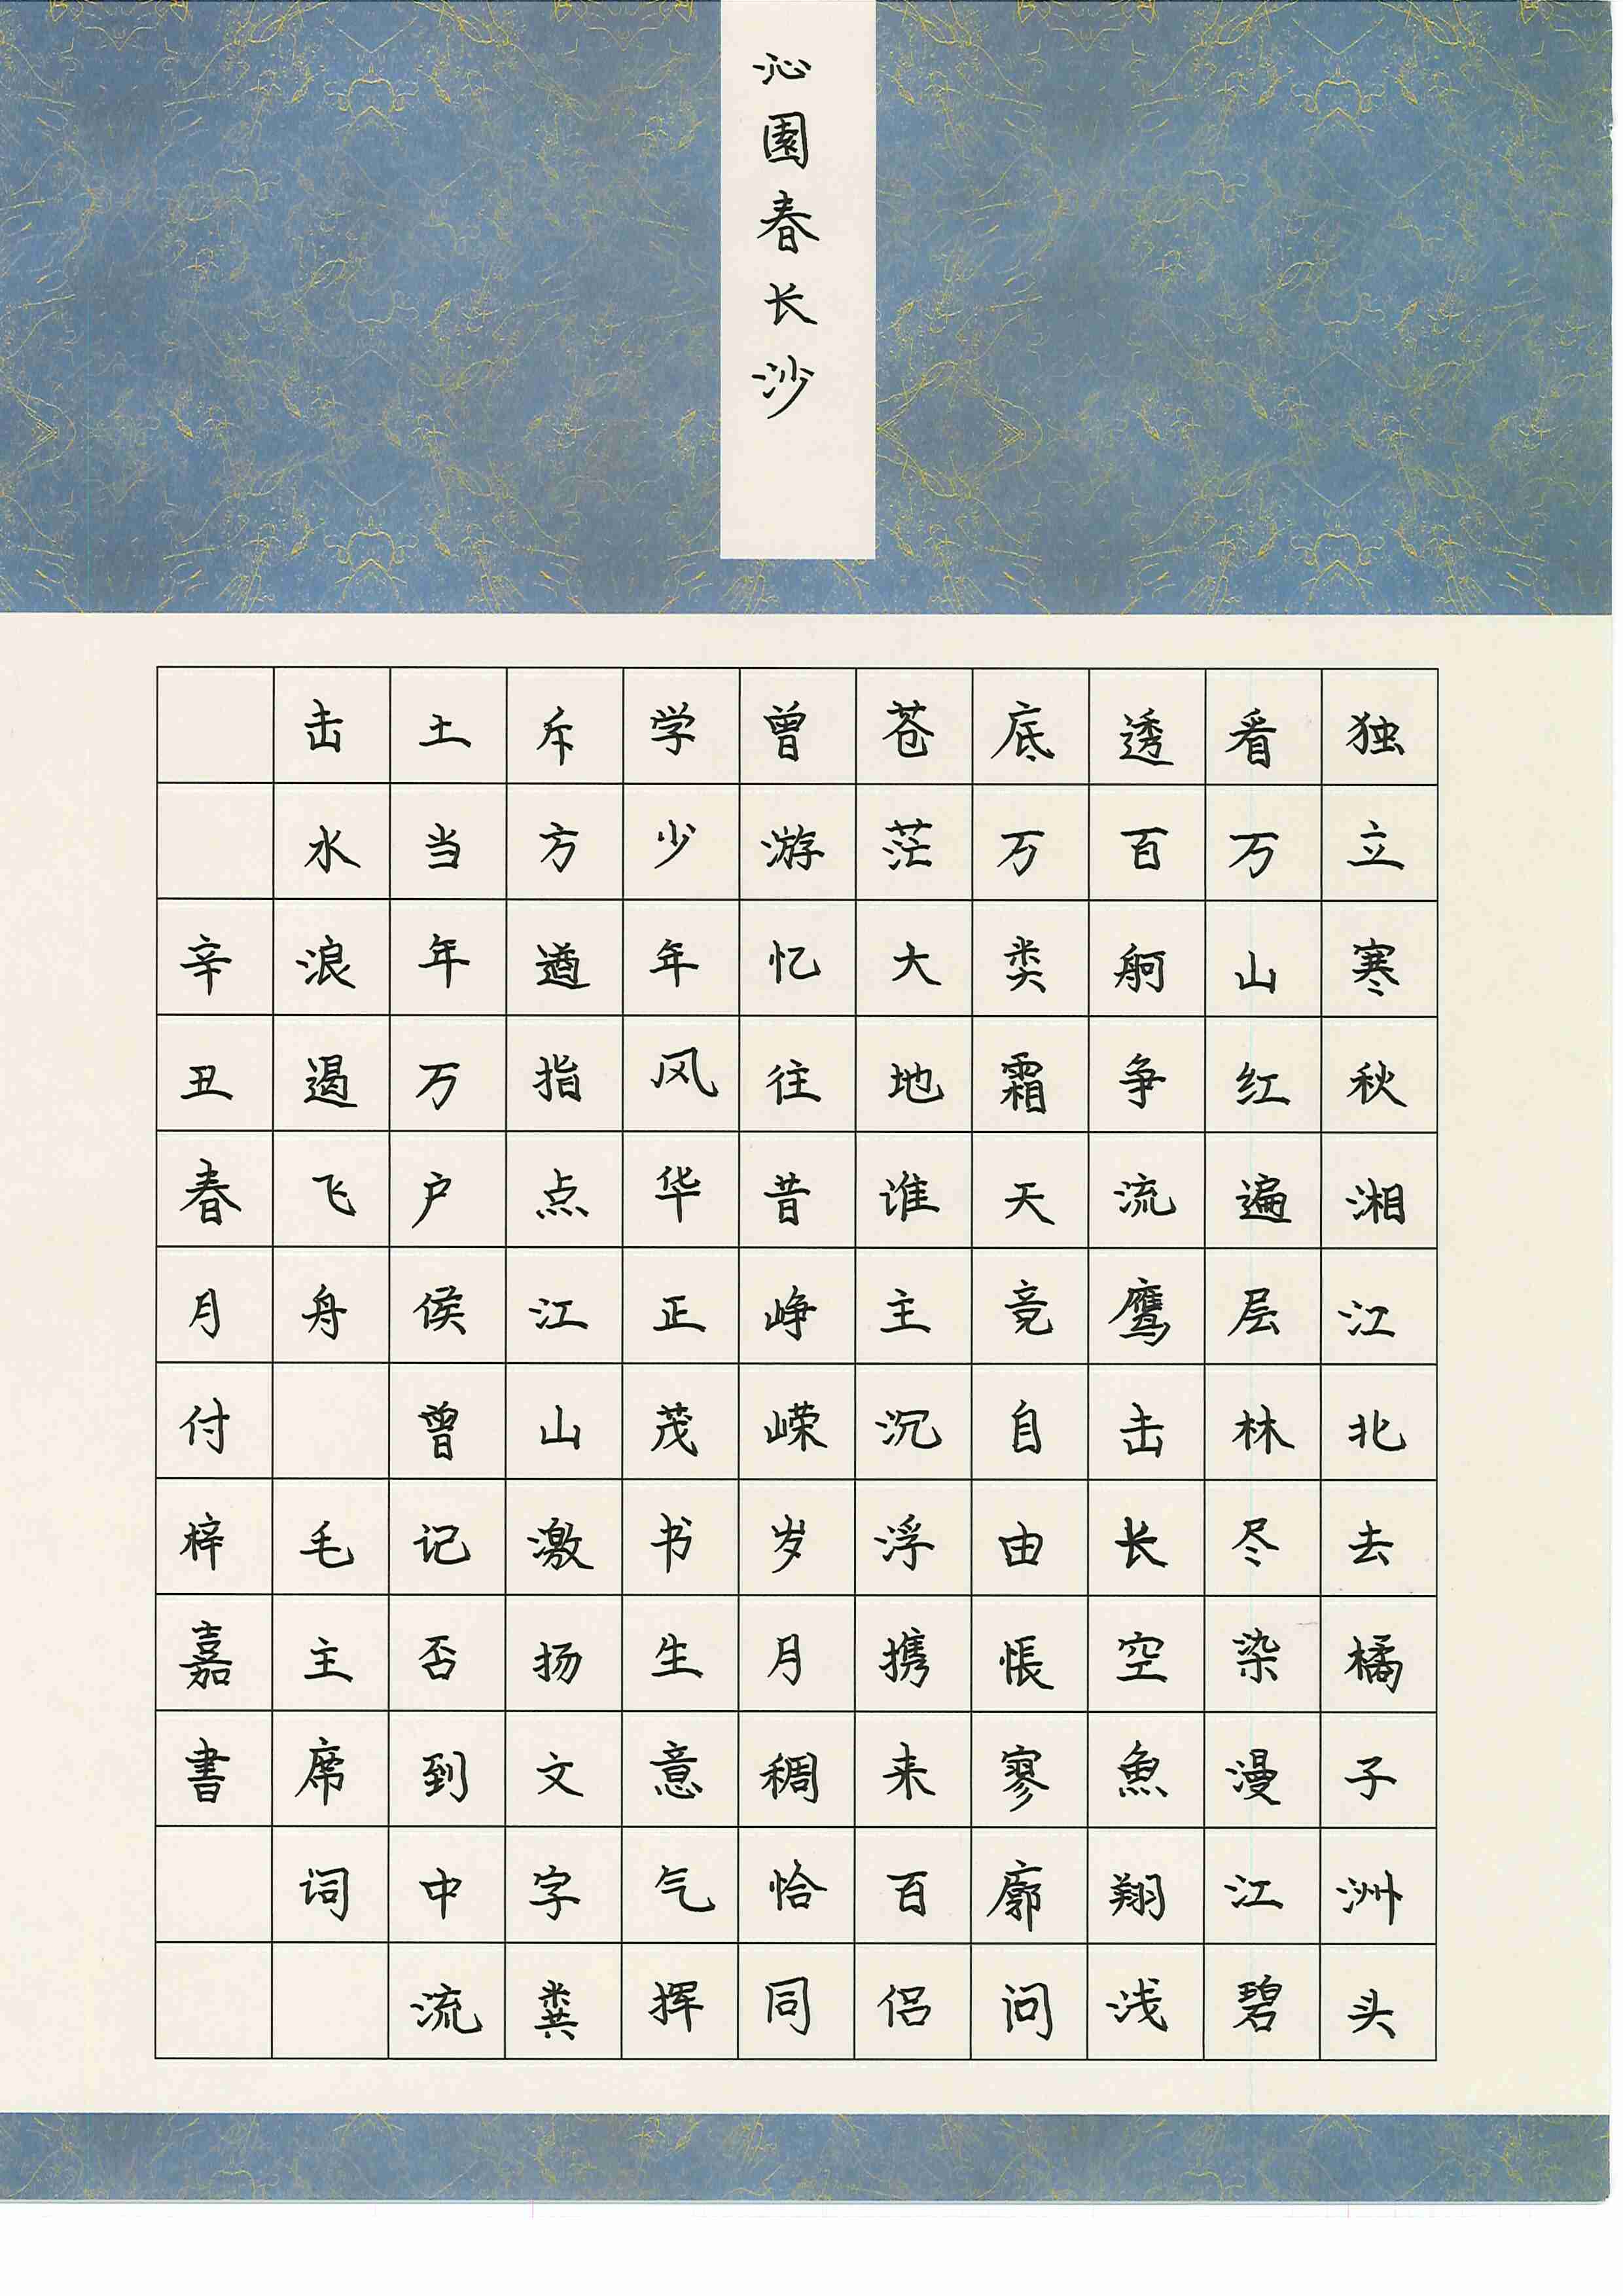 沁園春长沙
独立寒秋湘江北去橘子洲头
看万山红遍层林尽染漫江碧
透百舸争流鹰击长空魚翔浅
底万类霜天竞自由悵寥廓问
苍茫大地谁主沉浮携来百侣
曾游忆往昔峥嵘岁月稠恰同
学少年风华正茂书生意气挥
斥方遒指点江山激扬文字粪
土当年万户侯曾记否到中流
击水浪遏飞舟 毛主席词
辛丑春月付梓嘉書